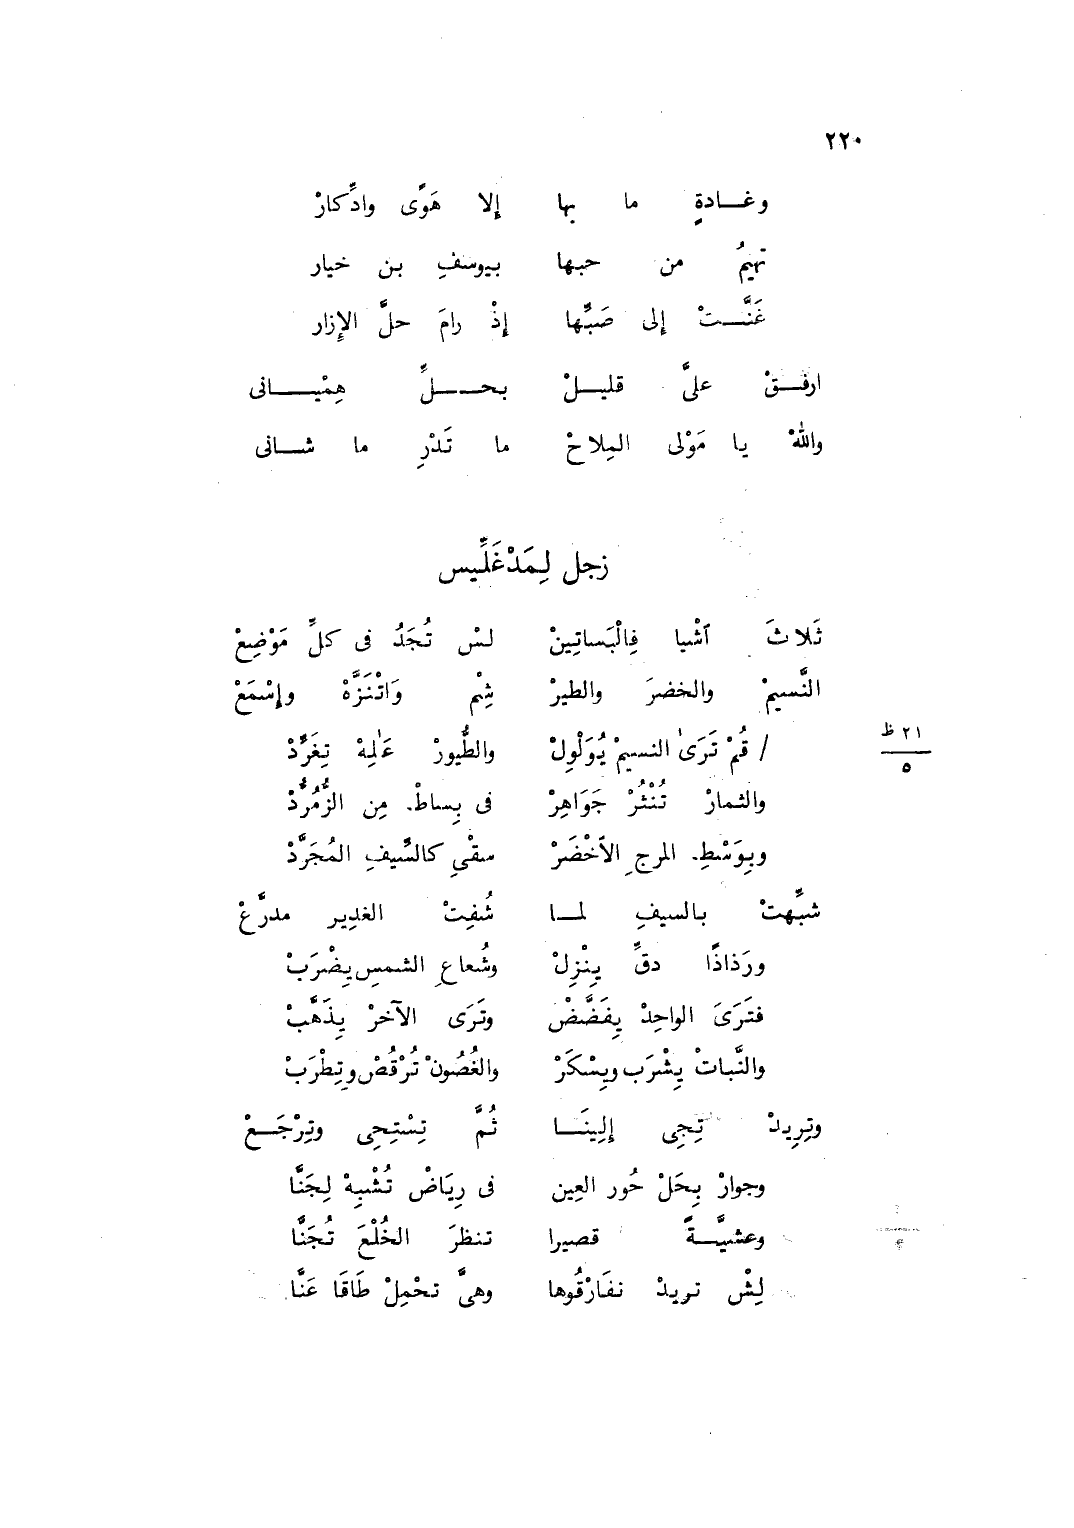 ٢٢٠
وغـــادةٍ ما بها إلا هَوًى وادِّكارْ
تهيمُ من حبها بيوسفِ بن خيار
غَنَّـــتْ إلى صَبِّها إذْ رامَ حلَّ الإزار
ارفـــقْ علىَّ قليـــلْ بحـــلِّ هِمْيـــانى
واللهْ يا مَوْلى المِلاحْ ما تَدْرِ ما شـــانى
زجل لِمَدْغَلِّيس
ثَلاثَ اَشْيا فِالْبَساتِينْ لسْ تُجَدُ فى كلِّ مَوْضِعْ
النَّسيمْ والخضرَ والطيرْ شِمْ وَاتْنَزَّهْ وإسْمَعْ
/ قُمْ تَرَىٰ النسيمْ يُوَلْوِلْ والطُّيورْ عَلِهْ تِغَرَّدْ
٢١ ظ
٥
والثمارْ تُنْثُرْ جَوَاهِرْ فى بِساطْ. مِن الزُّمُرُّدْ
وبِوَسْطِ. المرجِ الأخْضَرْ سقْىِ كالسَّيفِ المُجَرَّدْ
شبِّهتْ بالسيفِ لمـــا شُفِتْ الغدِير مدرَّعْ
ورَذاذًا دقِّ يِنْزِلْ وشُعاعِ الشمسِ يِضْرَبْ
فتَرَىَ الواحِدْ يِفَضَّضْ وتَرَى الآخرْ يِذَهَّبْ
والنَّباتْ يِشْرَب ويِسْكَرْ والغُصُونْ تُرْقُصْ وتِطْرَبْ
وتِرِيدْ تِجِى إلِينَـــا ثُمَّ تِسْتِحِى وتِرْجَـــعْ
وجوارْ بِحَلْ حُور العِين فى رِيَاضْ تُشْبِهْ لِجَنَّا
وعشيَّـــةً قصيرا تنظرَ الخُلْعَ تُجَنَّا
لِشْ تريدْ نفَارْقُوها وهىَّ تحْمِلْ طَاقَا عَنَّا